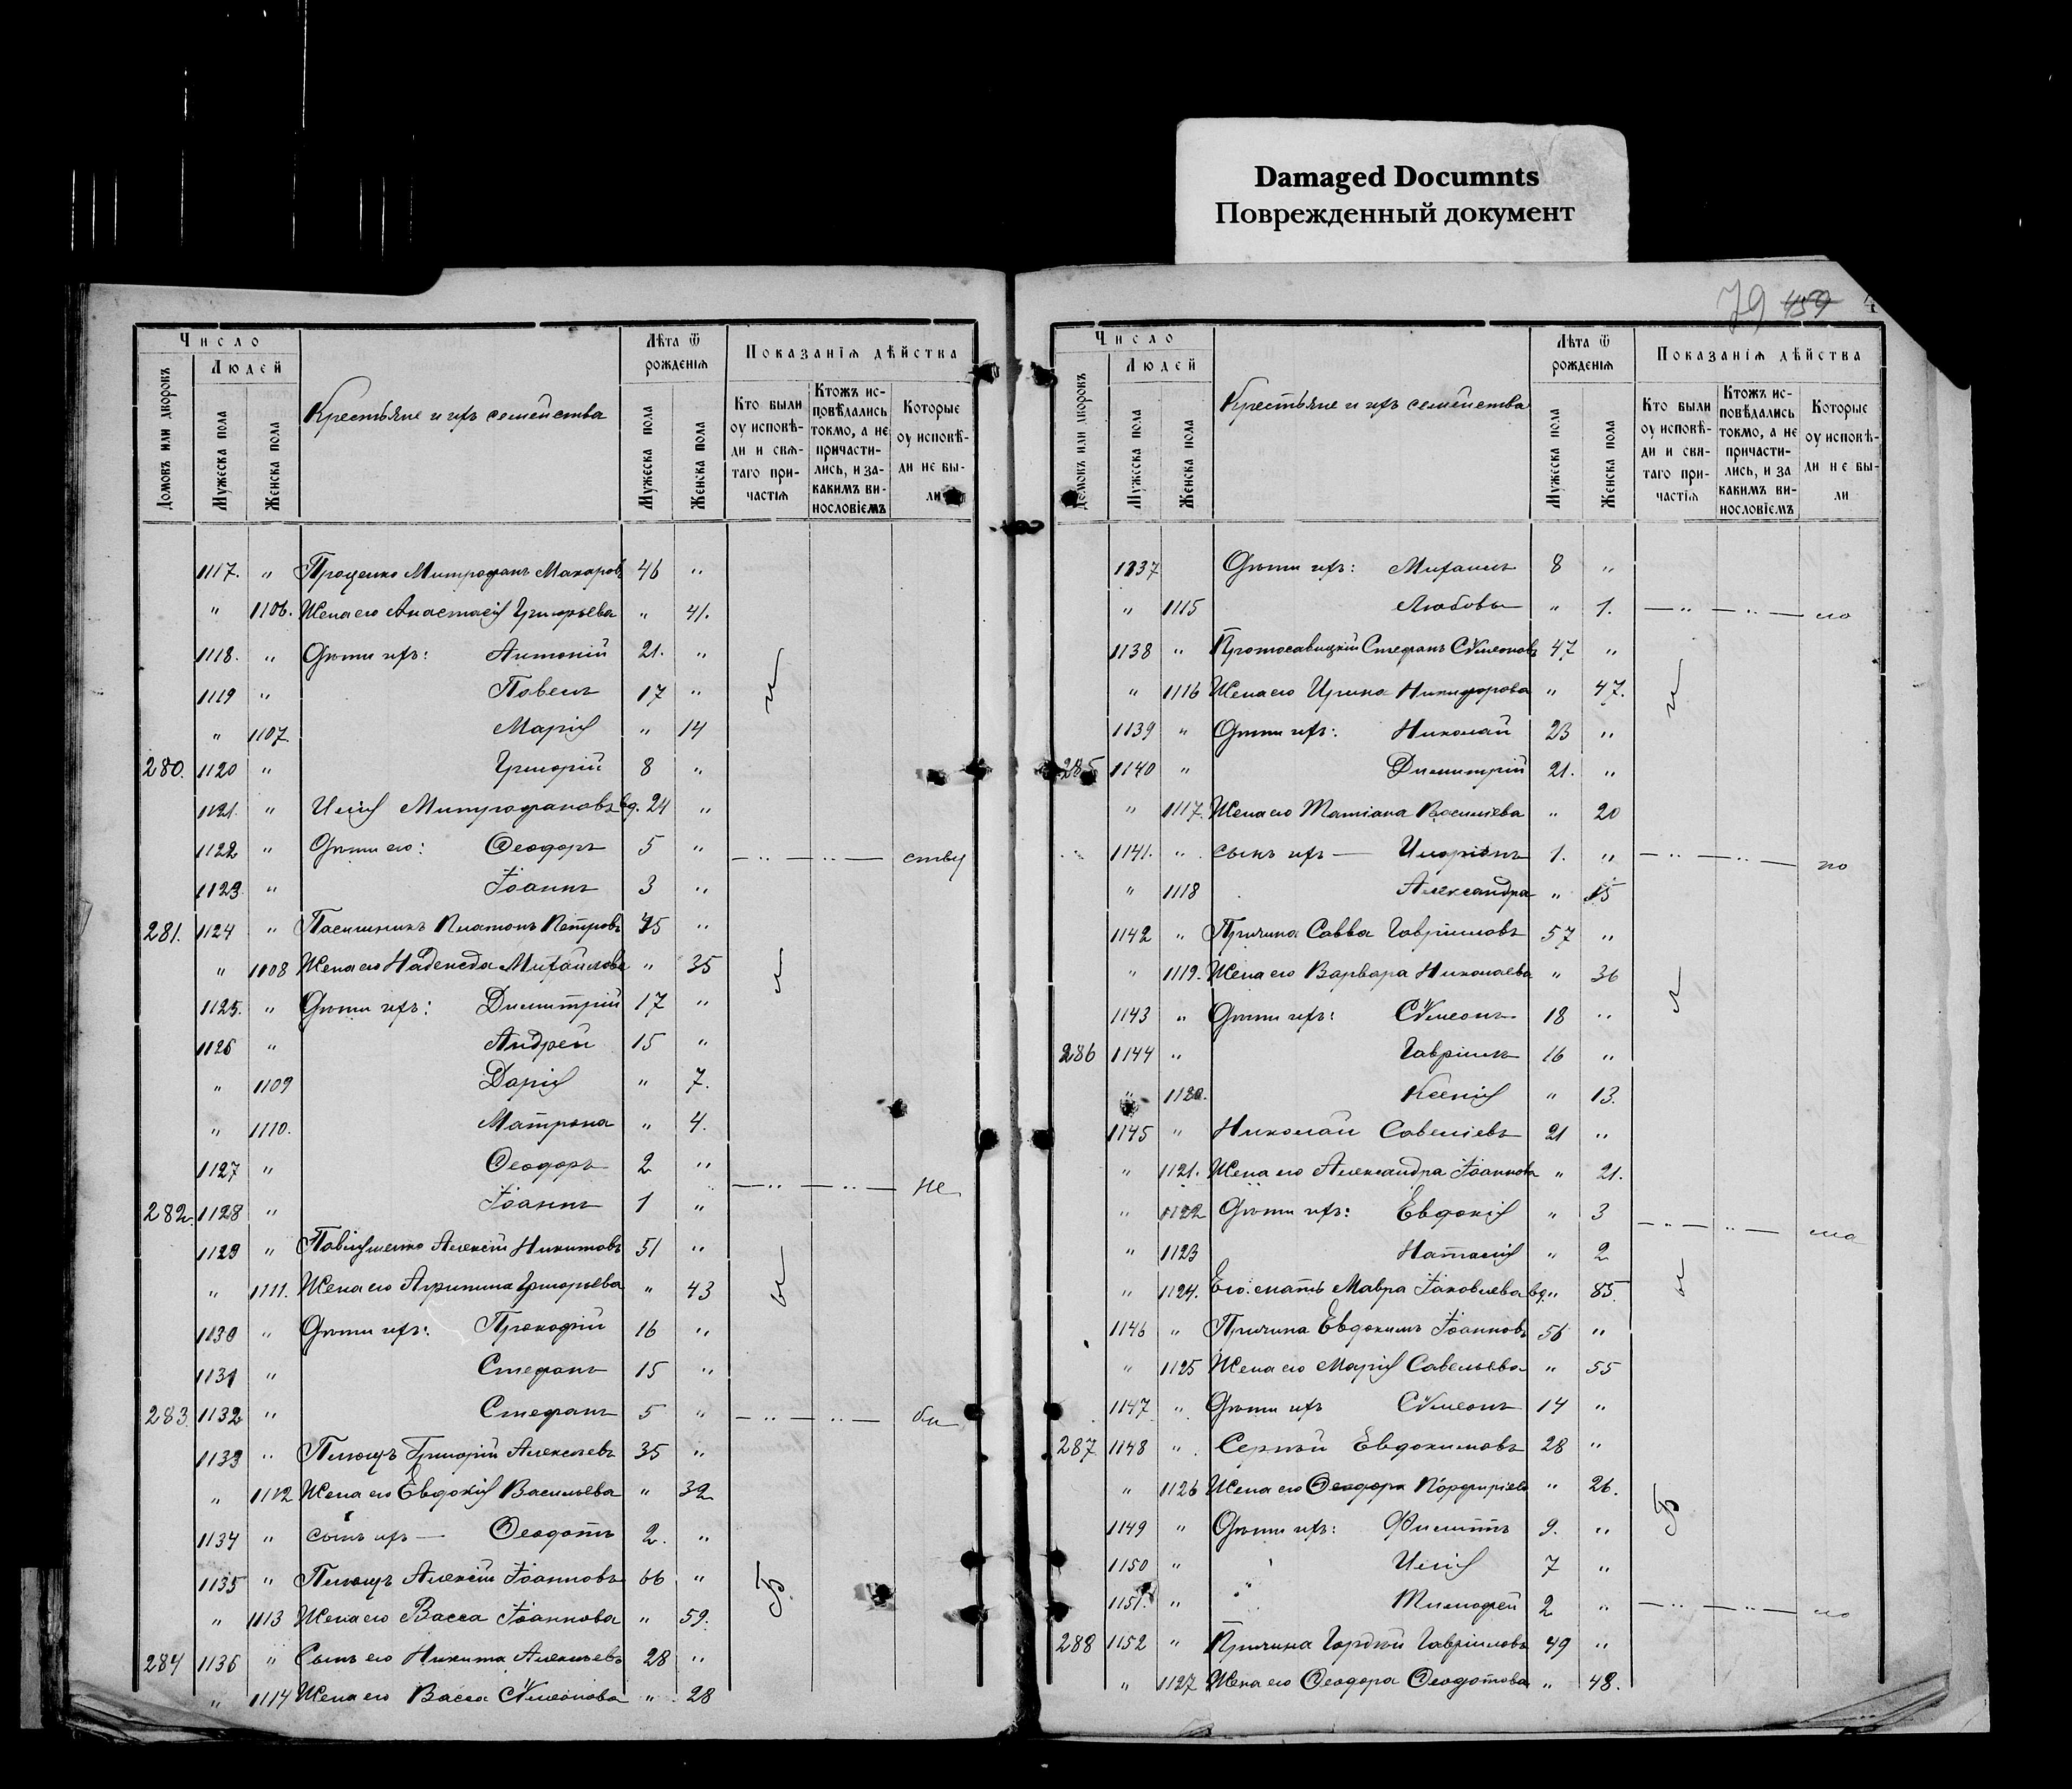 Damaged Documnts
Поврежденный документ
79 459 4
Число
Людей
Домовъ или дворовъ
Мужеска пола
Женска пола
Крестьяне и ихъ семейства
Лѣта ѿ рожденіѧ
Мужеска пола
Женска пола
Показаніѧ дѣйства
Кто были оу исповѣ-
ди и свѧ-
таго при-
частіѧ
Ктожъ ис-
повѣдались
токмо, а не
причасти-
лись, и за-
какимъ ви-
нословіемъ
Которые
оу исповѣ-
ди не бы-
ли
1117. " Проценко Митрофанъ Макаровъ 46 "
" 1106. Жена его Анастасія Григорьева " 41.
1118. " Дѣти ихъ: Антоній 21. "
1119 " Павелъ 17 "
" 1107. Марія " 14
280. 1120 " Григорій 8 "
1121. " Илія Митрофановъ вд. 24 "
1122 " Дѣти его: Ѳеодоръ 5 " — " — " — ству
1123 " Іоаннъ 3 "
281. 1124 " Пасишникъ Платонъ Петровъ 45 "
" 1108 Жена его Надежда Михайлова " 35
1125. " Дѣти ихъ: Димитрій 17 "
1126 " Андрей 15 "
" 1109 Дарія " 7.
" 1110. Матрона " 4.
1127 " Ѳеодоръ 2 " — " — " — не
282. 1128 " Іоаннъ 1 "
1129 " Алексій Никитовъ 51 "
" 1111. Жена его Агрипина Григорьева " 43
1130 " Дѣти ихъ: Прокофій 16 "
1131 " Стефанъ 15 "
283 1132 " Стефанъ 5 " — " — " —
1133 " Пилющъ Григорій Алексѣевъ 35 "
" 1112 Жена его Евдокія Васильева " 32
1134 " сынъ ихъ — Ѳеодотъ 2. "
1135 " Пилющъ Алексій Іоанновъ 66 "
" 1113 Жена его Васса Іоаннова " 59.
284 1136 " Сынъ его Никита Алексѣевъ 28 "
" 1114 Жена его Васса Сѵмеонова " 28
Число
Людей
Домовъ или дворовъ
Мужеска пола
Женска пола
Крестьяне и ихъ семейства
Лѣта ѿ рожденіѧ
Мужеска пола
Женска пола
Показаніѧ дѣйства
Кто были
оу исповѣ-
ди и свѧ-
таго при-
частіѧ
Ктожъ ис-
повѣдались
токмо, а не
причасти-
лись, и за
какимъ ви-
нословіемъ
Которые
оу исповѣ-
ди не бы-
ли
1137 Дѣти ихъ: Михаилъ 8 "
" 1115 Любовь " 1. — " — " —
1138 " Протосавицкій Стефанъ Сѵмеоновъ 47 "
" 1116 Жена его Ирина Никифорова " 47.
1139 " Дѣти ихъ: Николай 23 "
285 1140 " Димитрій 21. "
" 1117. Жена его Татіана Васильева " 20
1141. " сынъ ихъ — Иларіонъ 1. " — " — " —
" 1118 Александра " 15
1142 " Причина Савва Гавріиловъ 57 "
" 1119. Жена его Варвара Николаева " 36
1143 " Дѣти ихъ: Сѵмеонъ 18 "
286 1144 " Гавріилъ 16 "
" 1120. Ксенія " 13.
1145 " Николай Савеліевъ 21 "
" 1121. Жена его Александра Іоаннова " 21.
" 1122 Дѣти ихъ: Евдокія " 3 — " — " —
" 1123 Наталія " 2
" 1124. Его мать Мавра Іаковлева вд. " 85.
1146 " Причина Евдокимъ Іоанновъ 56 "
" 1125 Жена его Марія Савельева " 55
1147 " Дѣти ихъ Сѵмеонъ 14 "
287 1148 " Сергѣй Евдокимовъ 28 "
" 1126 Жена его Ѳеодора Порфиріева " 26.
1149 " Дѣти ихъ: Филиппъ 9. "
1150 " Илія 7 "
1151. " Тимофей 2 " — " — " —
288 1152 " Причина Гордій Гавріиловъ 49 "
" 1127 Жена его Ѳеодора Ѳеодотова " 48.